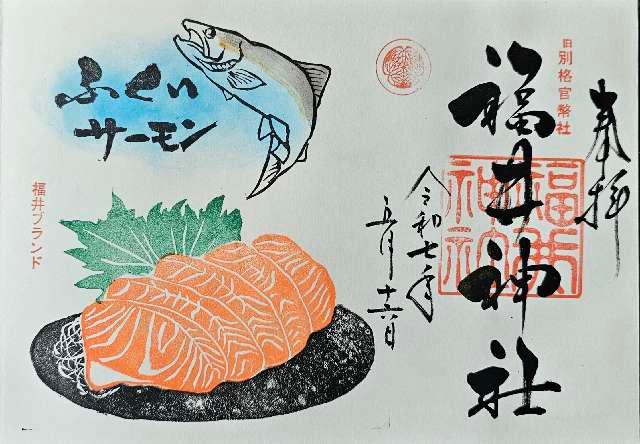 奉拝
旧別格官幣社
福井神社
福井神社
令和七年
五月十六日
ふくい
サーモン
福井ブランド